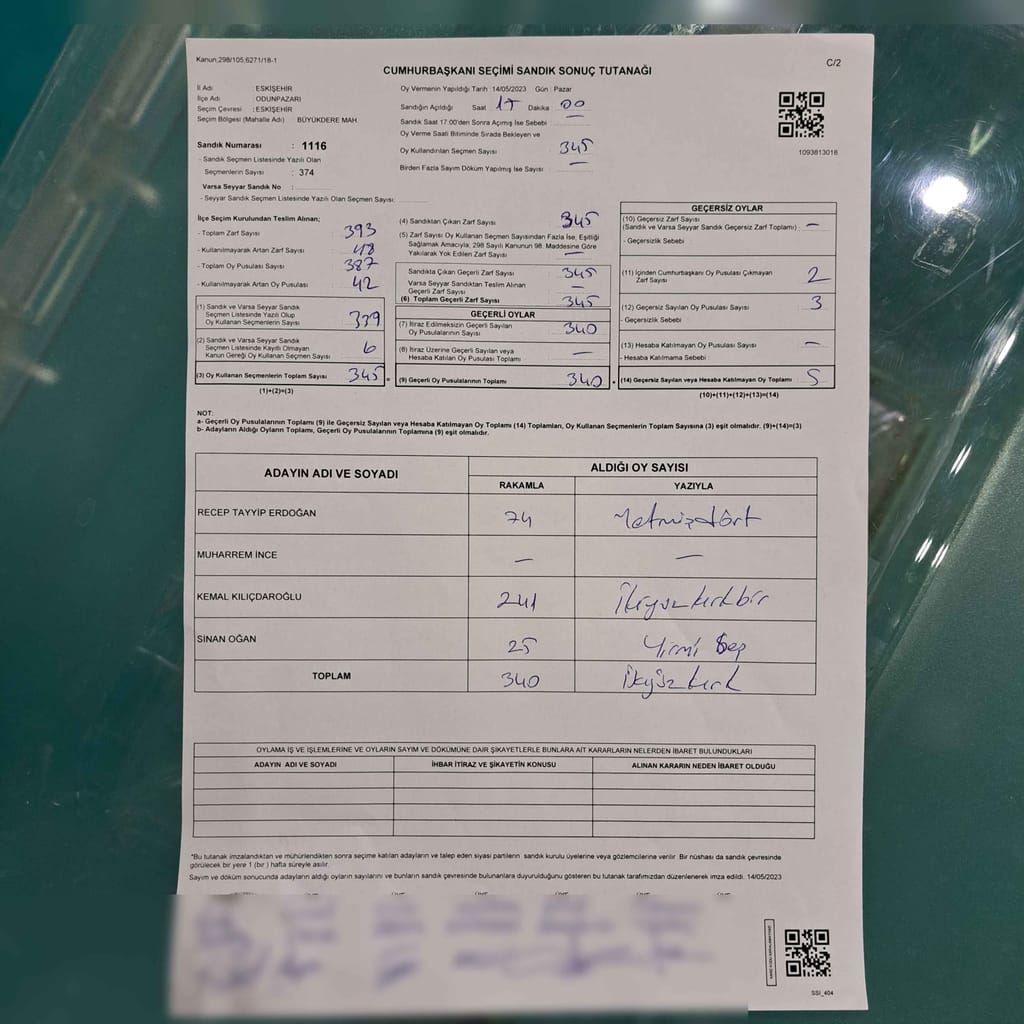 Kanun;298/105,6271/18-1
C/2
CUMHURBAŞKANI SEÇİMİ SANDIK SONUÇ TUTANAĞI
İl Adı : ESKİŞEHİR
İlçe Adı : ODUNPAZARI
Seçim Çevresi : ESKİŞEHİR
Seçim Bölgesi (Mahalle Adı) BÜYÜKDERE MAH.
Sandık Numarası : 1116
- Sandık Seçmen Listesinde Yazılı Olan
Seçmenlerin Sayısı : 374
Varsa Seyyar Sandık No :
- Seyyar Sandık Seçmen Listesinde Yazılı Olan Seçmen Sayısı;
Oy Vermenin Yapıldığı Tarih : 14/05/2023 Gün : Pazar
Sandığın Açıldığı Saat 17 Dakika 00
Sandık Saat 17:00'den Sonra Açımış İse Sebebi :
Oy Verme Saati Bitiminde Sırada Bekleyen ve
Oy Kullandırılan Seçmen Sayısı : 345
Birden Fazla Sayım Döküm Yapılmış İse Sayısı : —
1093813018
İlçe Seçim Kurulundan Teslim Alınan;
- Toplam Zarf Sayısı 393
- Kullanılmayarak Artan Zarf Sayısı 48
- Toplam Oy Pusulası Sayısı 387
- Kullanılmayarak Artan Oy Pusulası 42
(1) Sandık ve Varsa Seyyar Sandık
Seçmen Listesinde Yazılı Olup
Oy Kullanan Seçmenlerin Sayısı 339
(2) Sandık ve Varsa Seyyar Sandık
Seçmen Listesinde Kayıtlı Olmayan
Kanun Gereği Oy Kullanan Seçmen Sayısı 6
(3) Oy Kullanan Seçmenlerin Toplam Sayısı 345 =
(1)+(2)=(3)
(4) Sandıktan Çıkan Zarf Sayısı 345
(5) Zarf Sayısı Oy Kullanan Seçmen Sayısından Fazla İse, Eşitliği
Sağlamak Amacıyla, 298 Sayılı Kanunun 98. Maddesine Göre
Yakılarak Yok Edilen Zarf Sayısı —
Sandıkta Çıkan Geçerli Zarf Sayısı 345
Varsa Seyyar Sandıktan Teslim Alınan
Geçerli Zarf Sayısı —
(6) Toplam Geçerli Zarf Sayısı 345
GEÇERLİ OYLAR
(7) İtiraz Edilmeksizin Geçerli Sayılan
Oy Pusulalarının Sayısı 340
(8) İtiraz Üzerine Geçerli Sayılan veya
Hesaba Katılan Oy Pusulası Toplamı —
(9) Geçerli Oy Pusulalarının Toplamı 340 +
GEÇERSİZ OYLAR
(10) Geçersiz Zarf Sayısı
(Sandık ve Varsa Seyyar Sandık Geçersiz Zarf Toplamı) —
- Geçersizlik Sebebi
(11) İçinden Cumhurbaşkanı Oy Pusulası Çıkmayan
Zarf Sayısı 2
(12) Geçersiz Sayılan Oy Pusulası Sayısı 3
- Geçersizlik Sebebi
(13) Hesaba Katılmayan Oy Pusulası Sayısı —
- Hesaba Katılmama Sebebi :
(14) Geçersiz Sayılan veya Hesaba Katılmayan Oy Toplamı 5
(10)+(11)+(12)+(13)=(14)
NOT:
a- Geçerli Oy Pusulalarının Toplamı (9) ile Geçersiz Sayılan veya Hesaba Katılmayan Oy Toplamı (14) Toplamları, Oy Kullanan Seçmenlerin Toplam Sayısına (3) eşit olmalıdır. (9)+(14)=(3)
b- Adayların Aldığı Oyların Toplamı, Geçerli Oy Pusulalarının Toplamına (9) eşit olmalıdır.
ADAYIN ADI VE SOYADI
ALDIĞI OY SAYISI
RAKAMLA YAZIYLA
RECEP TAYYİP ERDOĞAN 74 Yetmişdört
MUHARREM İNCE — —
KEMAL KILIÇDAROĞLU 241 İkiyüzkırkbir
SİNAN OĞAN 25 Yirmi Beş
TOPLAM 340 İkiyüzkırk
OYLAMA İŞ VE İŞLEMLERİNE VE OYLARIN SAYIM VE DÖKÜMÜNE DAİR ŞİKAYETLERLE BUNLARA AİT KARARLARIN NELERDEN İBARET BULUNDUKLARI
ADAYIN ADI VE SOYADI İHBAR İTİRAZ VE ŞİKAYETİN KONUSU ALINAN KARARIN NEDEN İBARET OLDUĞU
*Bu tutanak imzalandıktan ve mühürlendikten sonra seçime katılan adayların ve talep eden siyasi partilerin sandık kurulu üyelerine veya gözlemcilerine verilir. Bir nüshası da sandık çevresinde
görülecek bir yere 1 (bir ) hafta süreyle asılır.
Sayım ve döküm sonucunda adayların aldığı oyların sayılarını ve bunların sandık çevresinde bulunanlara duyurulduğunu gösteren bu tutanak tarafımızdan düzenlenerek imza edildi. 14/05/2023
SSI_404